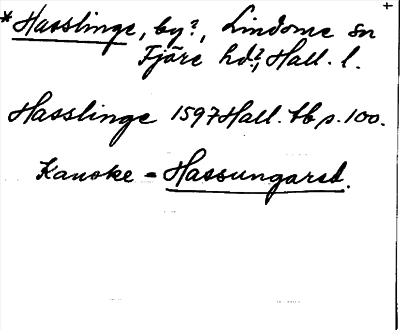 *Hasslinge, by?, Lindome sn
Fjäre hd?, Hall. l.
Hasslinge 1597 Hall. tb p. 100.
Kanske = Hassungared.
+